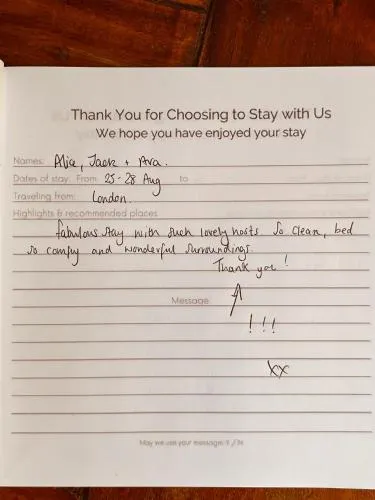 Thank You for Choosing to Stay with Us
We hope you have enjoyed your stay
Names: Alia, Jack + Ava.
Dates of stay: From 25-28 Aug to
Traveling from: London.
Highlights & recommended places
fabulous stay with such lovely hosts So clean, bed
so comfy and wonderful surroundings.
Thank you!
Message:
!!!
xx
May we use your message: Y / N